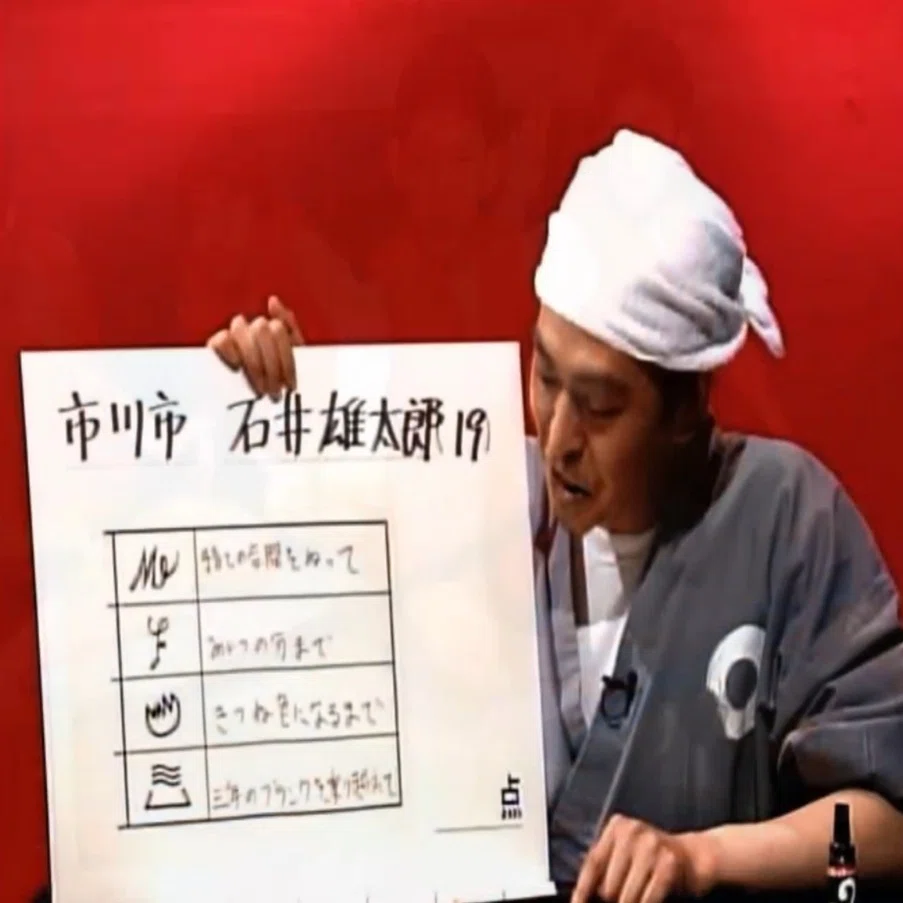 市川市 石井雄太郎(19)
の合間をぬって
まで
きつね色になるまで
三年のブランクを乗り越えて
点